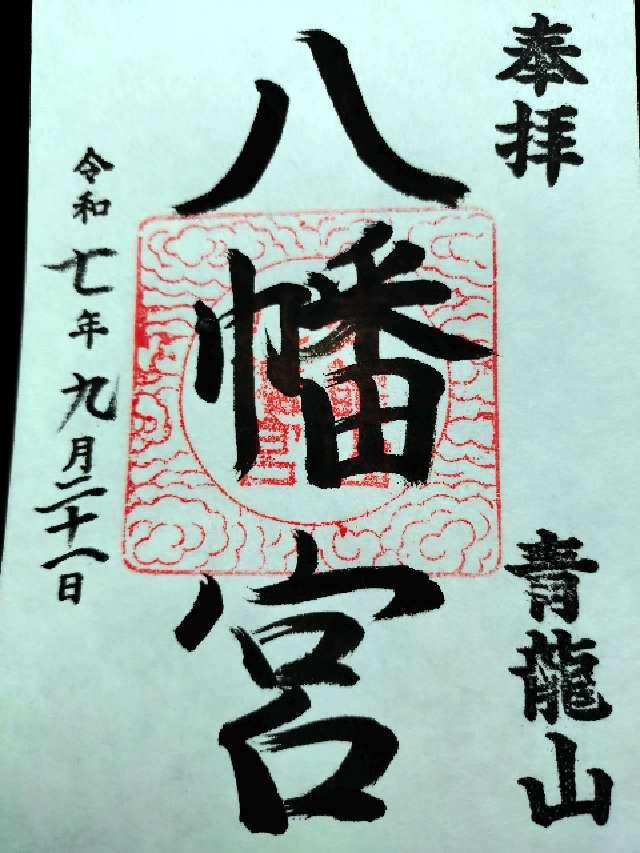 奉拝
青龍山
八幡宮
令和七年九月二十一日